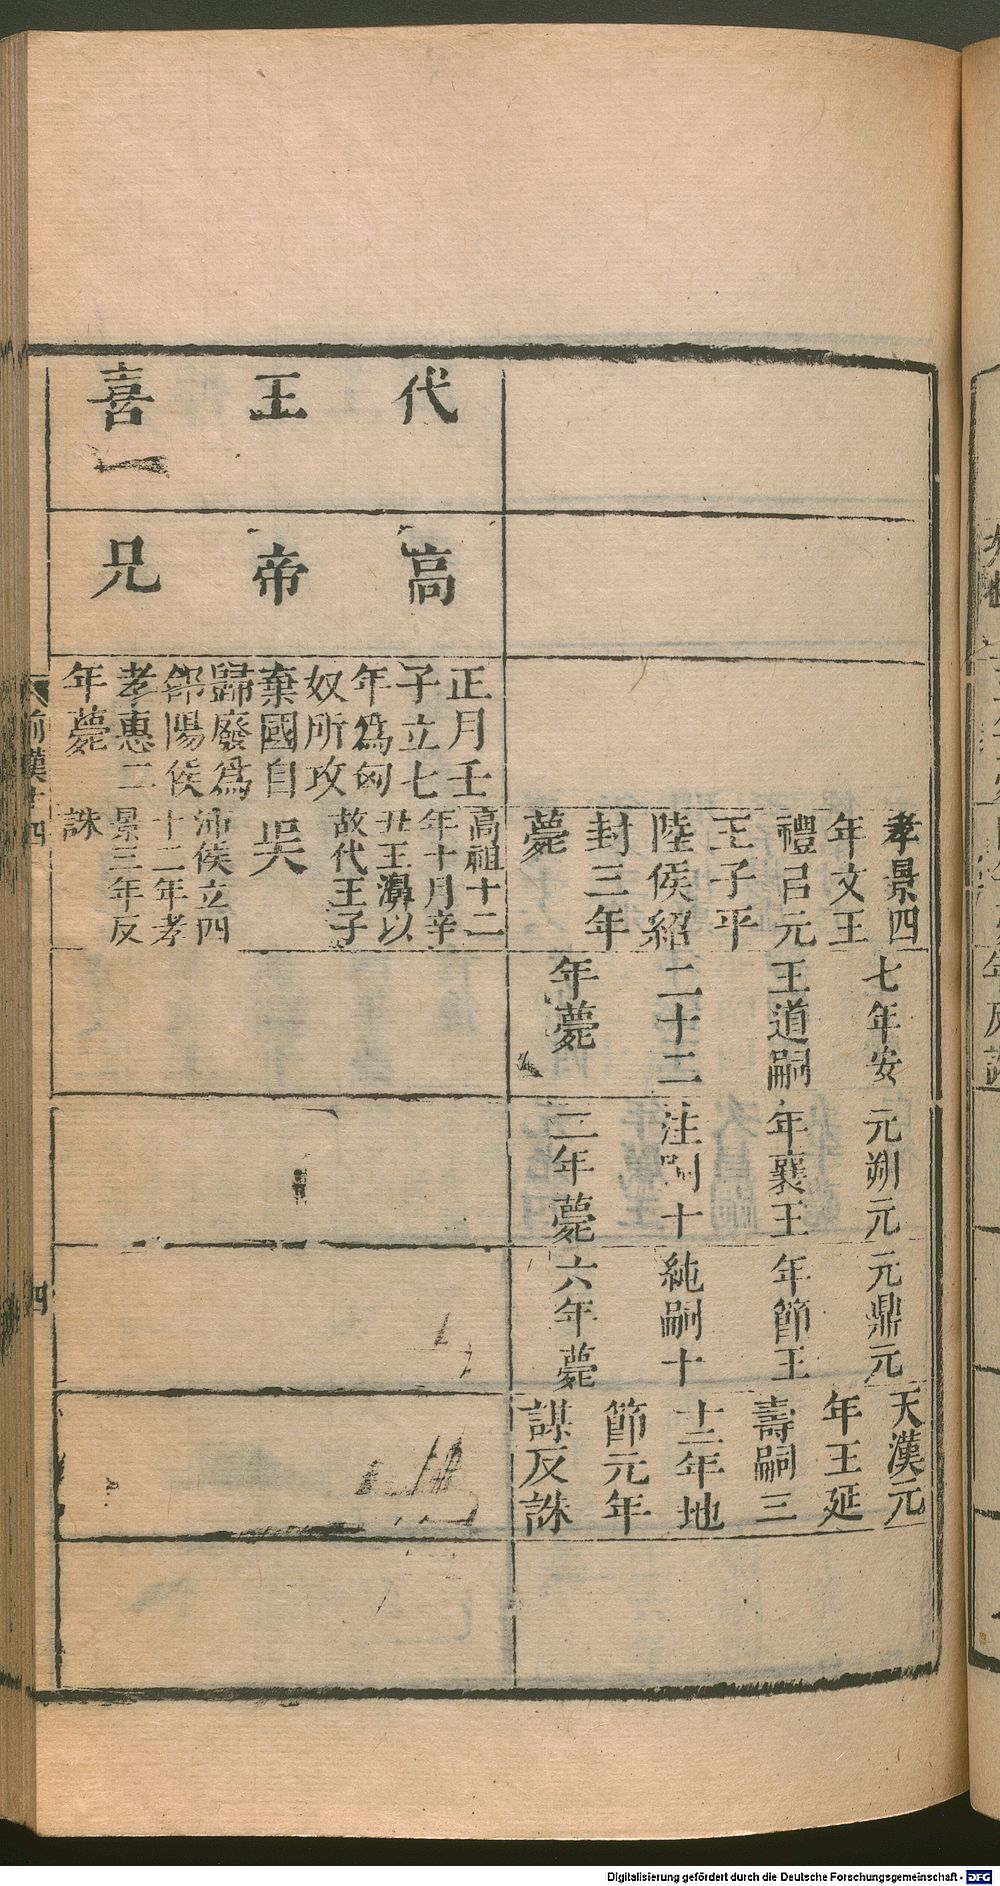 孝景四
年文王
禮吕元
王子平
陸侯紹
封三年
薨
七年安
王道嗣
二十二
年薨
元朔元
年襄王
注嗣十
二年薨
元鼎元
年節王
純嗣十
六年薨
天漢元
年王延
壽嗣三
十二年地
節元年
謀反誅
代
王
喜
高
帝
兄
正月壬
子立七
年爲匈
奴所攻
棄國自
歸廢爲
郃陽侯
孝惠二
年薨
高祖十二
年十月辛
丑王濞以
故代王子
吳
沛侯立四
十二年孝
景三年反
誅
前漢十四
四
Digitalisierung gefördert durch die Deutsche Forschungsgemeinschaft - DFG